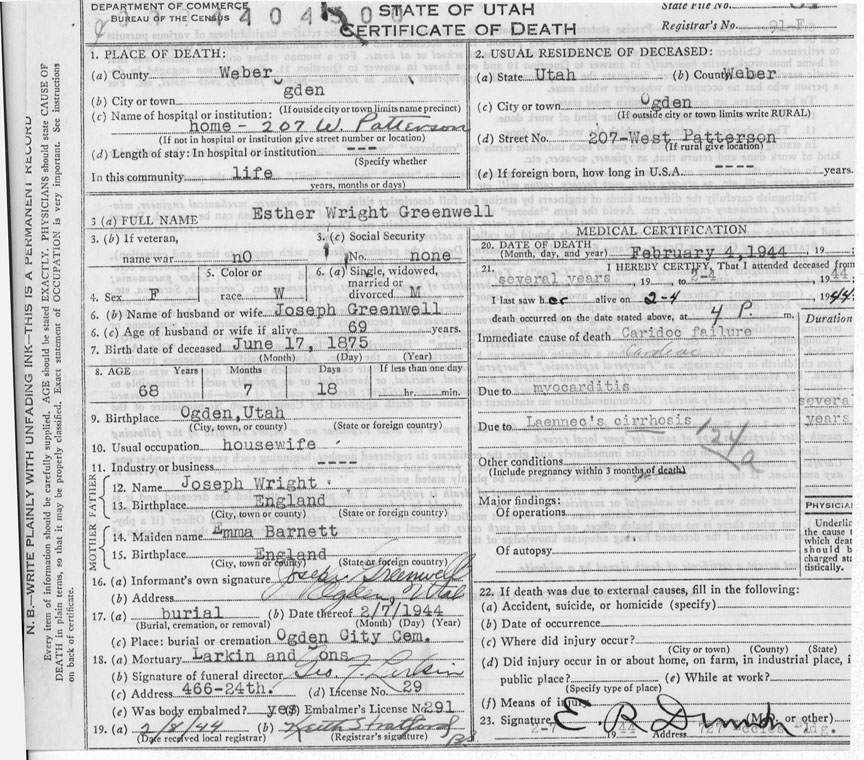 DEPARTMENT OF COMMERCE
BUREAU OF THE CENSUS
STATE OF UTAH
CERTIFICATE OF DEATH
State File No.
Registrar's No. 91-F
N. B.—WRITE PLAINLY WITH UNFADING INK—THIS IS A PERMANENT RECORD
Every item of information should be carefully supplied. AGE should be stated EXACTLY. PHYSICIANS should state CAUSE OF
DEATH in plain terms, so that it may be properly classified. Exact statement of OCCUPATION is very important. See instructions
on back of certificate.
1. PLACE OF DEATH:
(a) County Weber
(b) City or town gden
(If outside city or town limits name precinct)
(c) Name of hospital or institution:
home - 207 W. Patterson
(If not in hospital or institution give street number or location)
(d) Length of stay: In hospital or institution ---
(Specify whether
In this community life
years, months or days)
2. USUAL RESIDENCE OF DECEASED:
(a) State Utah (b) County Weber
(c) City or town Ogden
(If outside city or town limits write RURAL)
(d) Street No. 207-West Patterson
(If rural give location)
(e) If foreign born, how long in U.S.A. ---- years.
3 (a) FULL NAME Esther Wright Greenwell
3. (b) If veteran,
name war nO
3. (c) Social Security
No. none
4. Sex F
5. Color or
race W
6. (a) Single, widowed,
married or
divorced M
6. (b) Name of husband or wife Joseph Greenwell
6. (c) Age of husband or wife if alive 69 years.
7. Birth date of deceased June 17, 1875
(Month) (Day) (Year)
8. AGE Years Months Days If less than one day
68 7 18 hr. min.
9. Birthplace Ogden,Utah
(City, town, or county) (State or foreign country)
10. Usual occupation housewife
11. Industry or business ----
FATHER
12. Name Joseph Wright
13. Birthplace England
(City, town or county) (State or foreign country)
MOTHER
14. Maiden name Emma Barnett
15. Birthplace England
(City, town or county) (State or foreign country)
16. (a) Informant's own signature Joseph Greenwell
(b) Address Ogden, Utah
17. (a) burial (b) Date thereof 2/7/1944
(Burial, cremation, or removal) (Month) (Day) (Year)
(c) Place: burial or cremation Ogden City Cem.
18. (a) Mortuary Larkin and ons
(b) Signature of funeral director Geo. F. Larkin
(c) Address 466-24th. (d) License No. 29
(e) Was body embalmed? yes Embalmer's License No. 291
19. (a) 2/8/44 (b) Keith Stratford
(Date received local registrar) (Registrar's signature)
MEDICAL CERTIFICATION
20. DATE OF DEATH
(Month, day, and year) February 4,1944 , 19
21. I HEREBY CERTIFY, That I attended deceased from
several years , 19 , to 2-4 , 1944
I last saw her alive on 2-4 , 1944.
death occurred on the date stated above, at 4 P. m.
Duration
Immediate cause of death Caridoc failure
Cardiac
Due to myocarditis
several
years
Due to Laennec's cirrhosis
124a
Other conditions
(Include pregnancy within 3 months of death)
Major findings:
Of operations
Of autopsy
PHYSICIA
Underlin
the cause t
which deat
should b
charged sta
tistically.
22. If death was due to external causes, fill in the following:
(a) Accident, suicide, or homicide (specify)
(b) Date of occurrence
(c) Where did injury occur?
(City or town) (County) (State)
(d) Did injury occur in or about home, on farm, in industrial place, i
public place? (e) While at work?
(Specify type of place)
(f) Means of injury
23. Signature E. R. (M.D. or other)
2-7 1944 Address 727 Eccles Bldg.